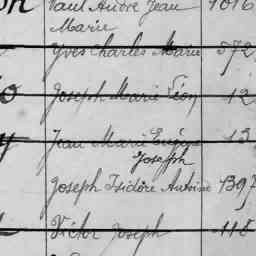 Paul André Jean 1016
Marie
Yves Charles Marie 572
Joseph Marie Léon 12
Jean Marie Eugène 13
Joseph
Joseph Isidore Antoine 1397
Victor Joseph 118